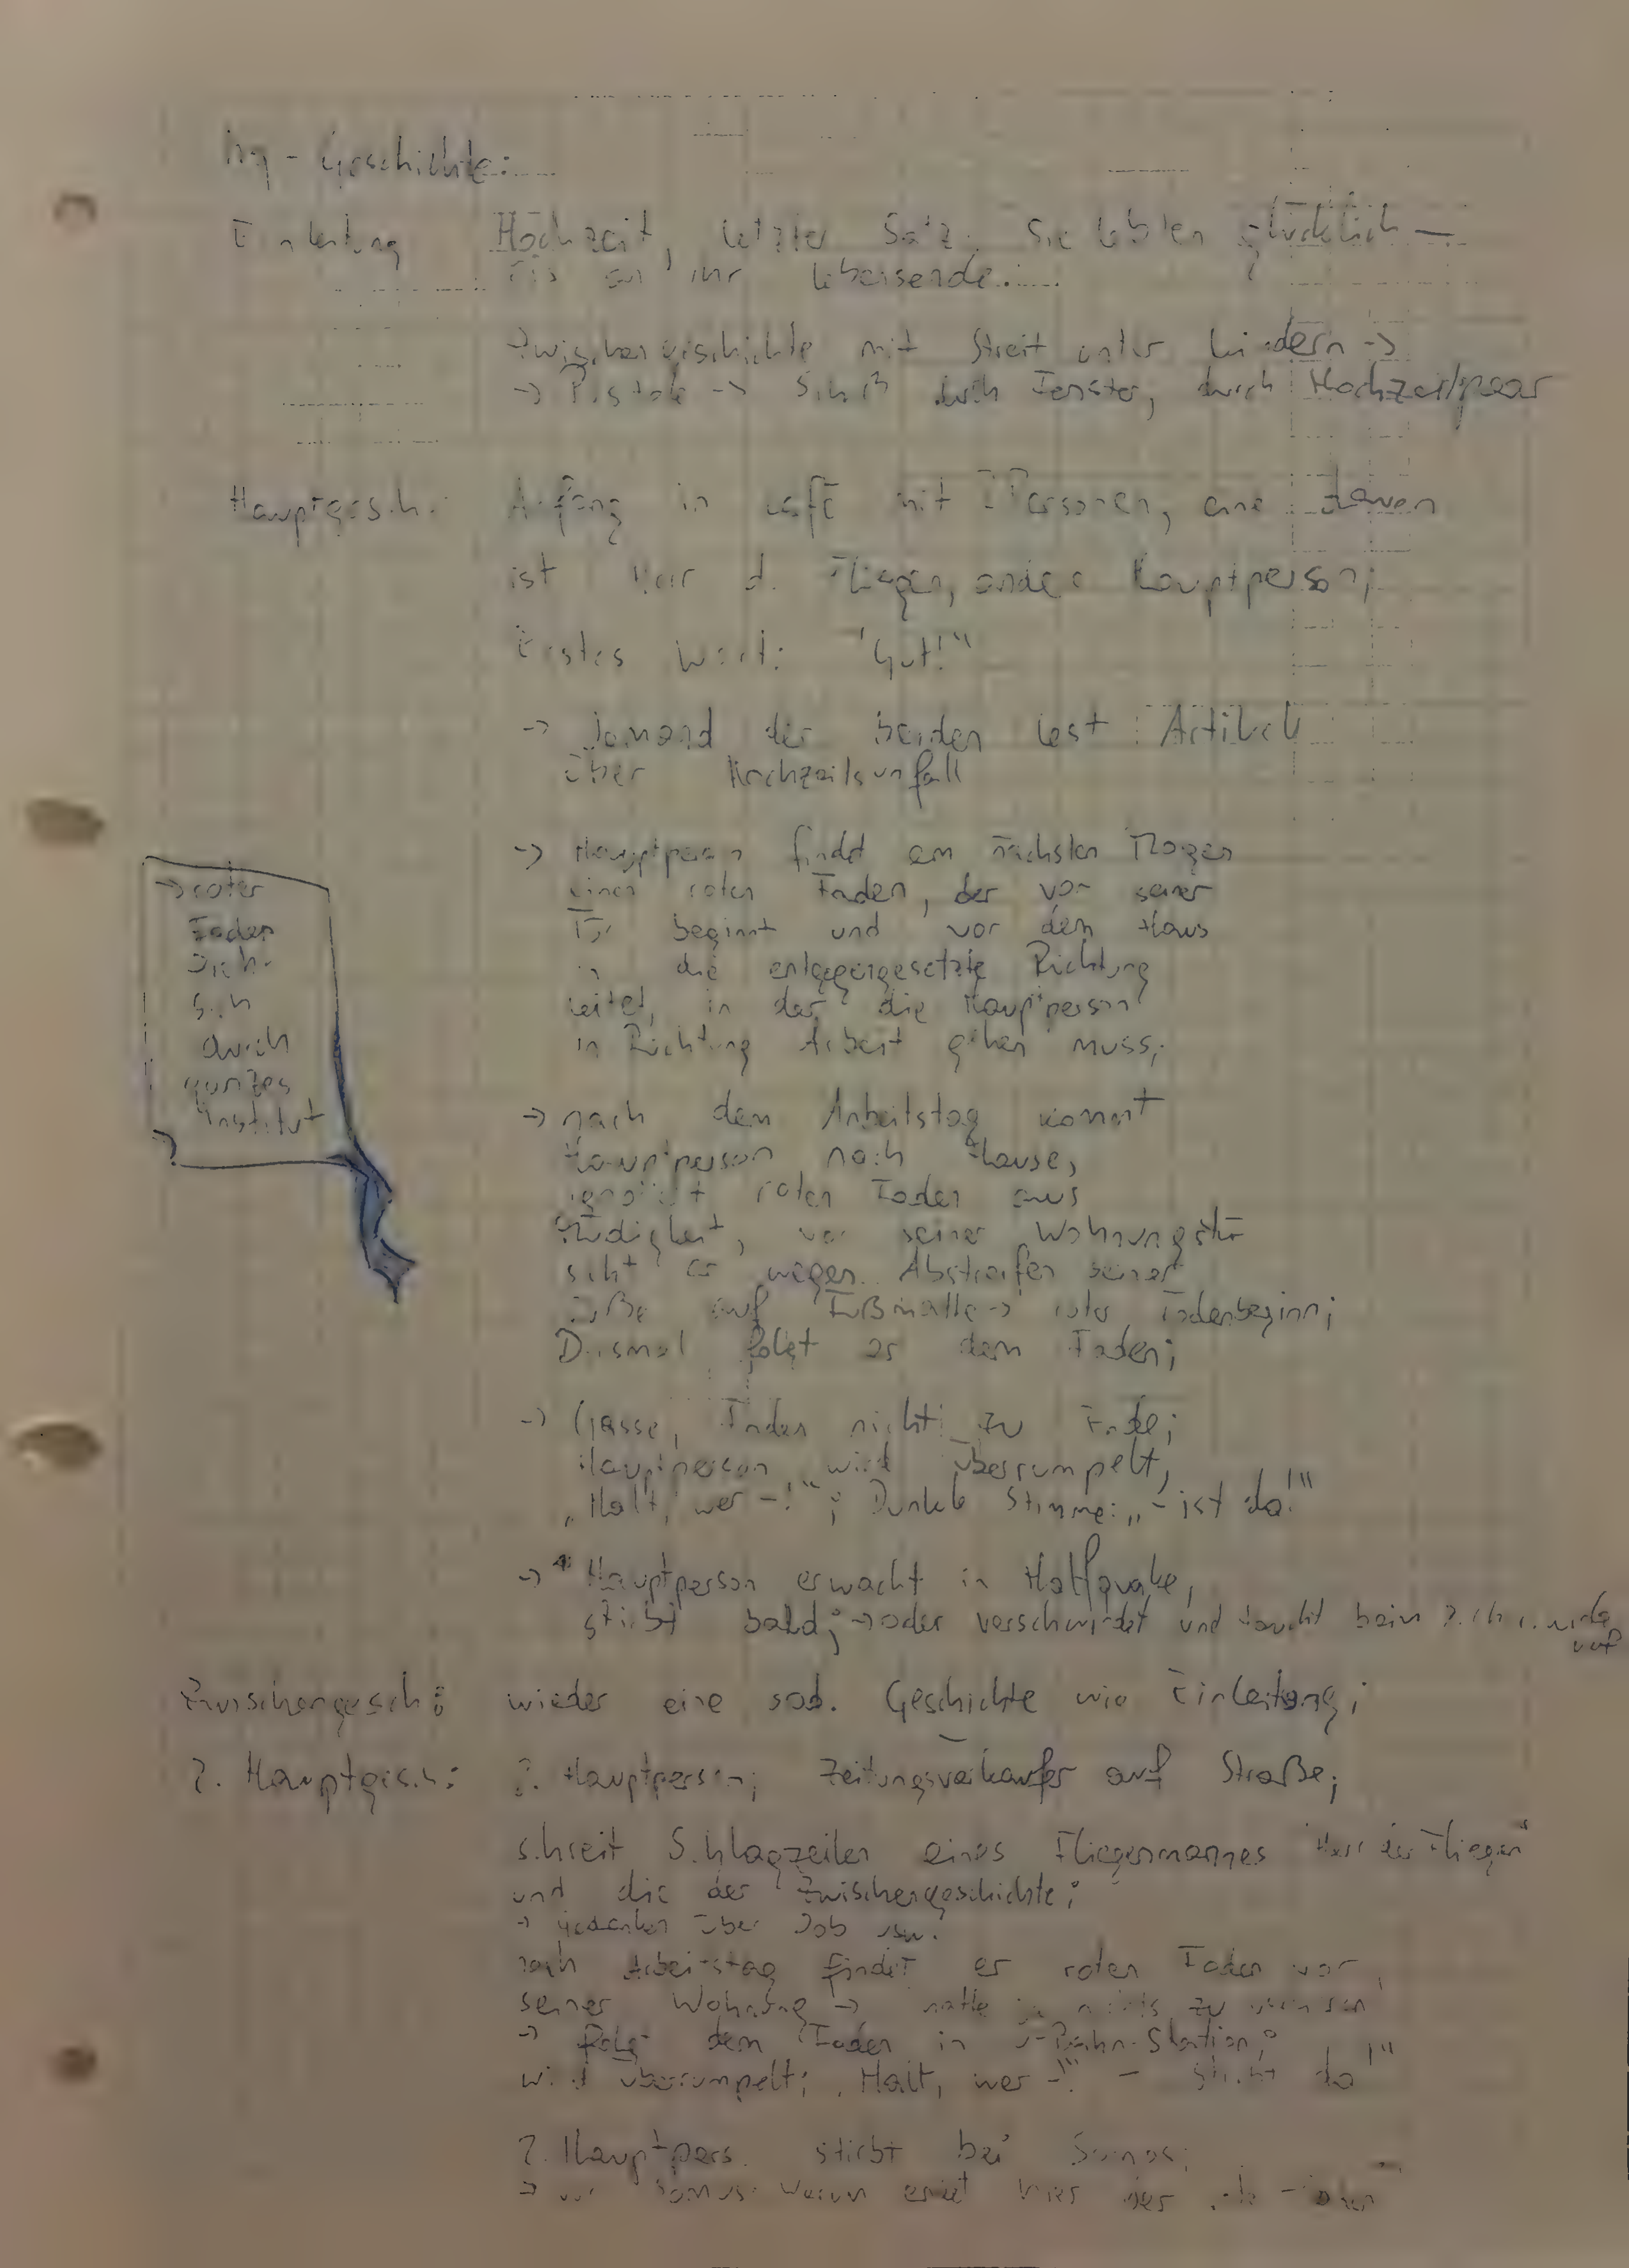 - Geschichte:
Einleitung Hochzeit, letzter Satz: Sie lebten glücklich —
Bis an ihr Lebensende.
Zwischengeschichte mit Streit unter Kindern ->
-> Pistole -> Schuß durch Fenster, durch Hochzeitspaar
Hauptgesch.: Anfang in Café mit 2 Personen, eine davon
ist Herr d. Fliegen, andere Hauptperson;
Erstes Wort: "Gut!"
-> Jemand der beiden lest Artikel
über Hochzeitsunfall
-> Hauptperson findet am nächsten Morgen
einen roten Faden, der vor seiner
Tür beginnt und vor dem Haus
in die entgegengesetzte Richtung
leitet, in der die Hauptperson
in Richtung Arbeit gehen muss;
-> roter
Faden
zieht
sich
durch
ganzes
Institut
-> nach dem Arbeitstag kommt
Hauptperson nach Hause,
ignoriert roten Faden aus
Müdigkeit, vor seiner Wohnungstür
sieht er wegen Abstreifen seiner
Füße auf Fußmatte -> roter Fadenbeginn;
Diesmal folgt er dem Faden;
-> Gasse, Faden nicht zu Ende;
Hauptperson wird überrumpelt,
„Halt, wer -!"; Dunkle Stimme: „- ist da!"
-> Hauptperson erwacht in
stirbt bald; -> oder verschwindet und taucht beim
Zwischengesch.: wieder eine sod. Geschichte wie Einleitung;
2. Hauptgesch.: 2. Hauptperson; Zeitungsverkäufer auf Straße;
schreit Schlagzeilen eines Fliegenmannes "Herr der Fliegen"
und die der Zwischengeschichte;
-> Gedanken über Job usw.
nach Arbeitstag findet er roten Faden vor
seiner Wohnung -> hatte ja nichts zu
-> folgt dem Faden in U-Bahn-Station;
wird überrumpelt; „Halt, wer -!" - da!"
2. Hauptpers. stirbt bei
-> warum